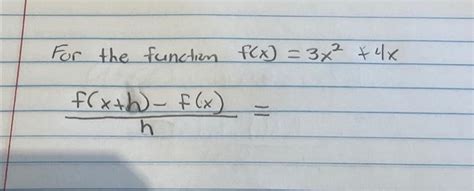 For the function f(x) = 3x² + 4x
f(x+h) - f(x)
h
=